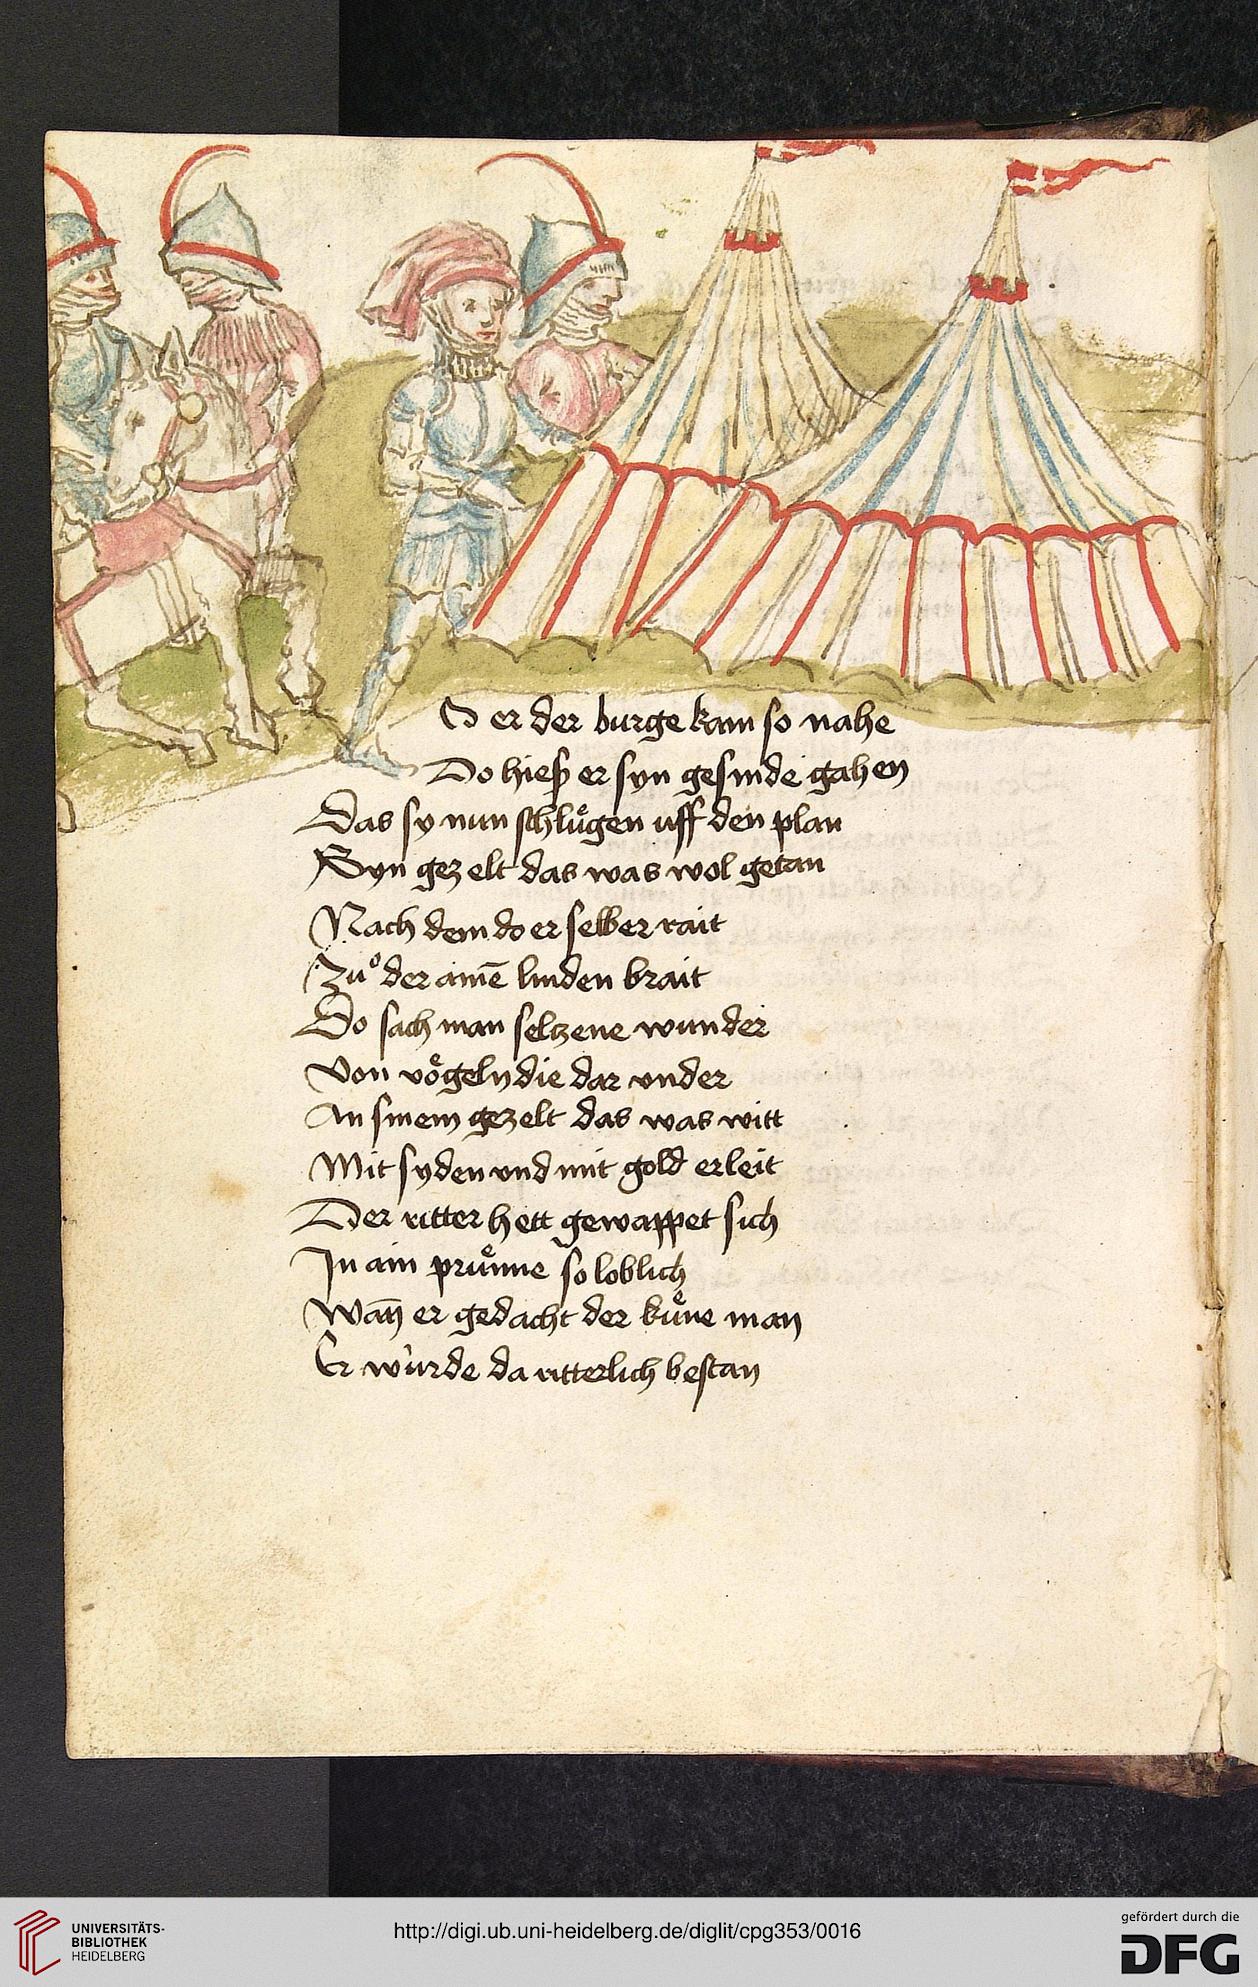 O er der burge kam so nahe
Do hieß er syn gesinde gahen
Das sy nun schluͤgen uff den plan
Syn gezelt das was wol getan
Nach dem do er selber rait
Zuͦ der ainē linden brait
Do sach man seltzene wunder
Von voͤgeln die dar vnder
An sinem gezelt das was witt
Mit syden vnd mit gold erleit
Der ritter hett gewappet sich
In ain pruͤnne so loblich
Wan̄ er gedacht der kuͤne man
Er wurde da ritterlich bestan
UNIVERSITÄTS-
BIBLIOTHEK
HEIDELBERG
http://digi.ub.uni-heidelberg.de/diglit/cpg353/0016
gefördert durch die
DFG